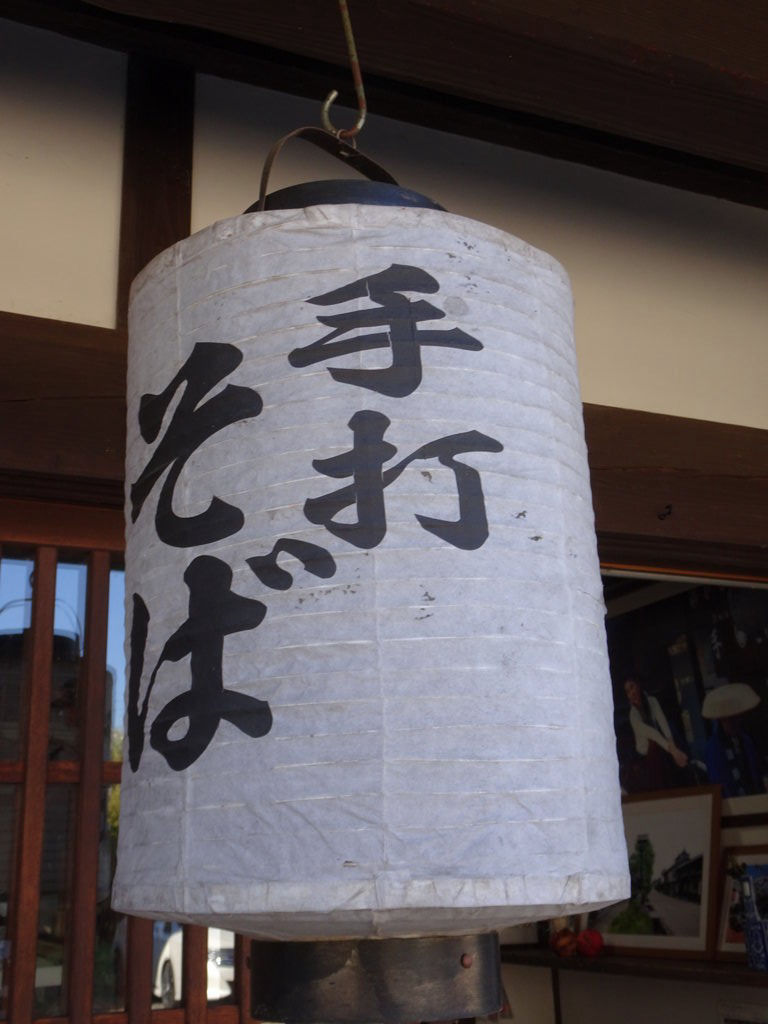 手打
そば